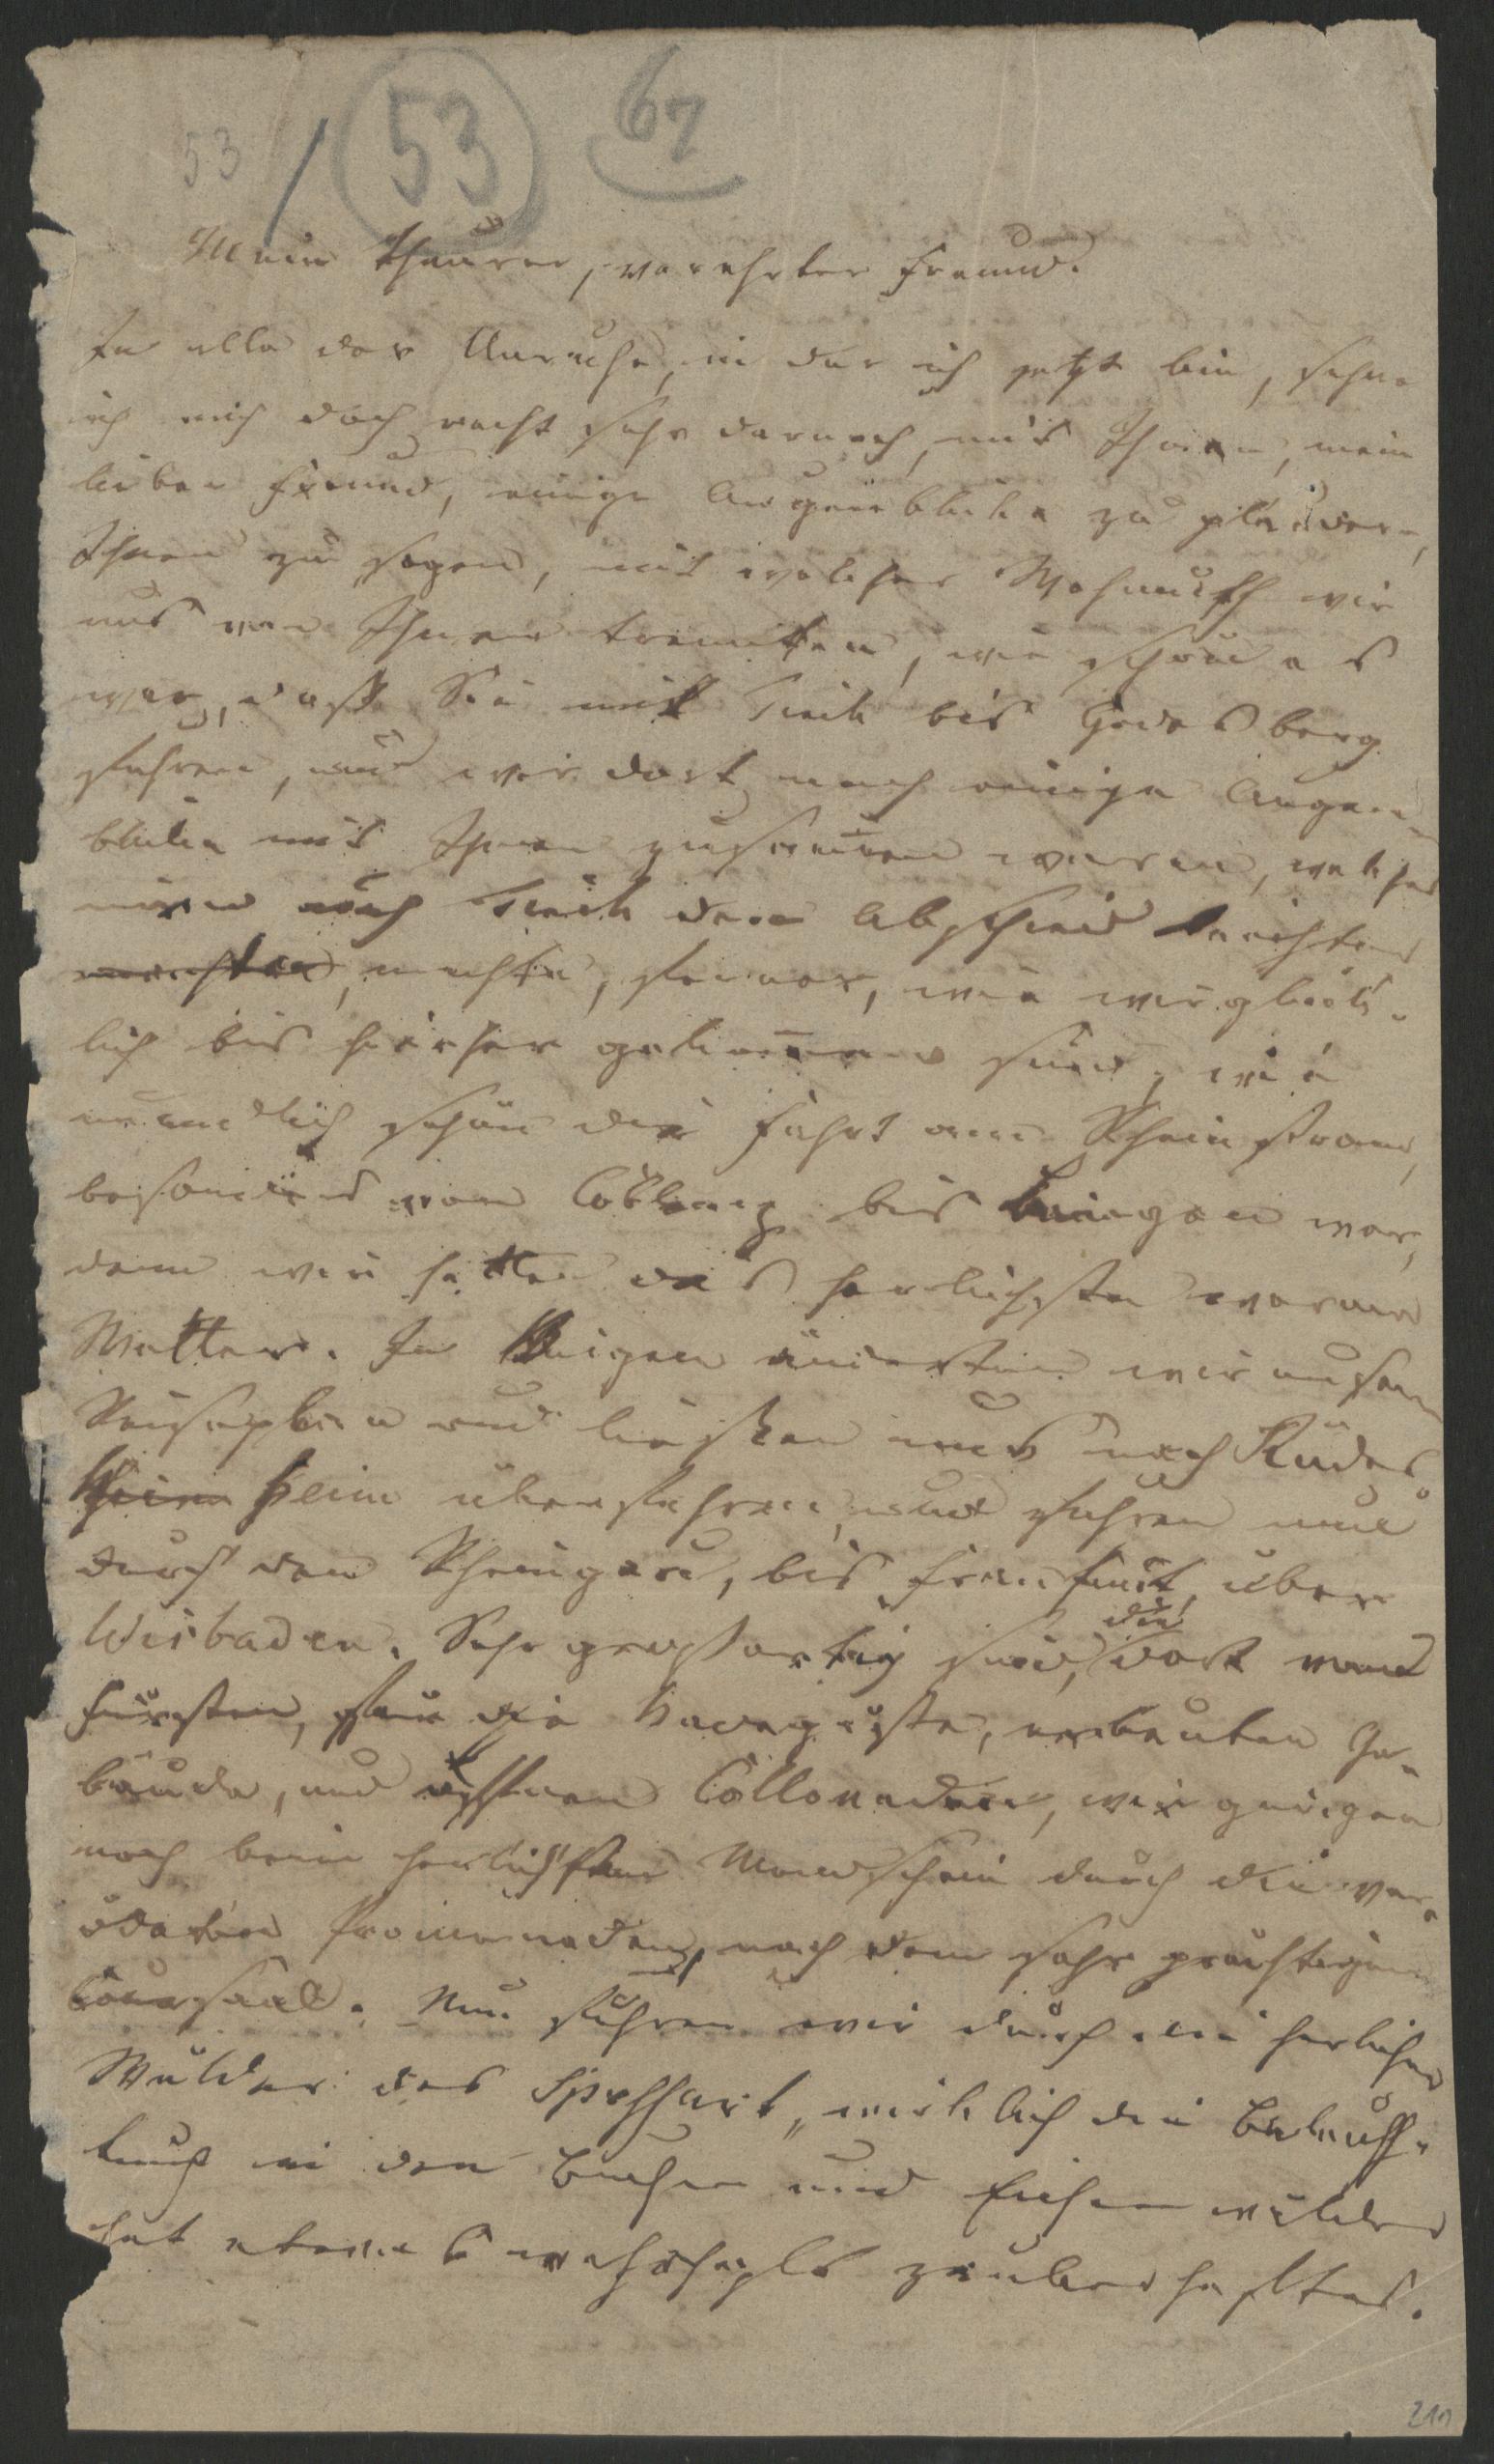 53 / 53 67
Mein theurer, verehrter Freund.
In alle der Unruhe, in der ich jetzt bin, sehne
ich mich doch recht sehr darnach, mit Ihnen, mein
lieber Freund, einige Augenblicke zu plaudern,
Ihnen zu sagen, mit welcher Wehmuth wir
uns von Ihnen trennten, wie schön es
war, daß Sie mit Tieck bis Godesberg
fuhren, und wir dort noch einige Augen-
blicke mit Ihnen zusam̅en waren, welches
mir auch Tieck den Abschied leichter
machte, ferner, wie wir glück-
lich bis hierher gekom̅en sind, wie
unendlich schön die Fahrt am Rheinstrom,
besonders von Coblenz bis Bingen war,
denn wir hatten das herlichste warme
Wetter. In Bingen änderten wir unsern
Reiseplan und ließen uns nach Rüdes-
heim überfahren, und fuhren nun
durch den Rheingau, bis Frankfurt, über
Wisbaden. Sehr großartig sind, die dort vom
Fürsten, für die Badegäste, erbauten Ge-
bäude, und offenen Collonaden, wir gingen
noch beim herlichsten Mondschein durch die ver-
ödeten Promenaden, nach dem sehr prächtigen
Coursaal. Nun fuhren wir durch die herlichen
Wälder des Speßhart, wirklich die Beleuch-
tung in den Buchen und Eichen wälder
hat etwas wahrhaft zauberhaftes.
211